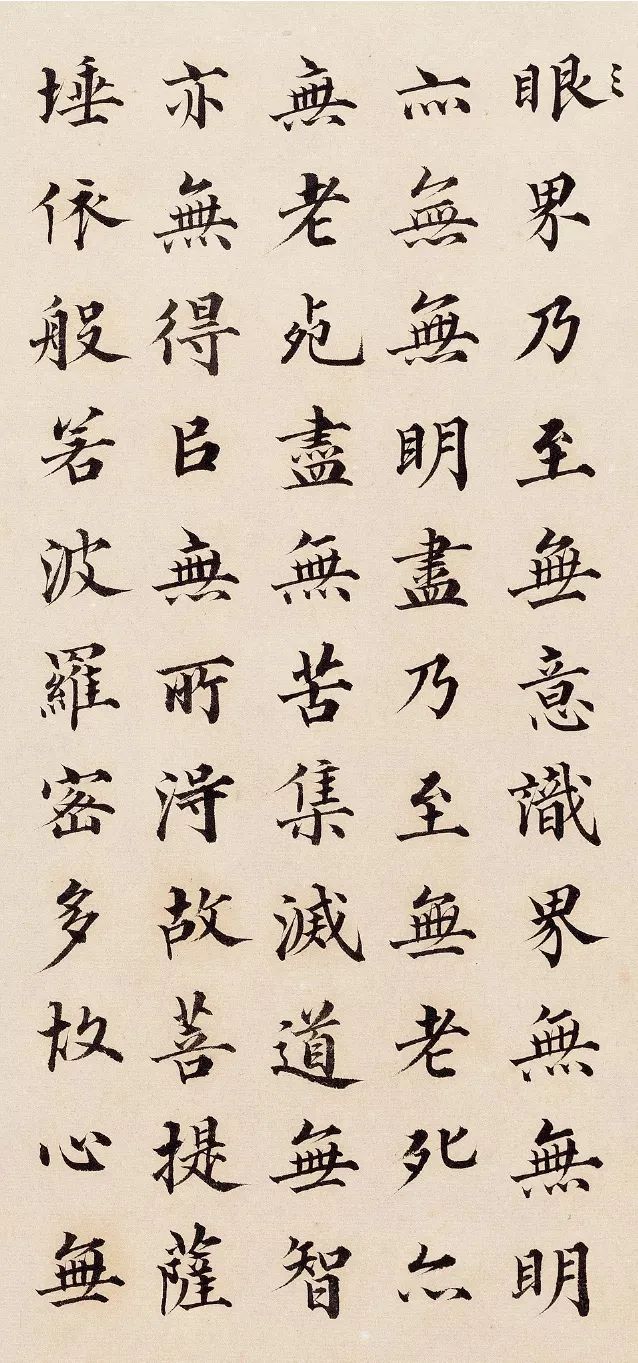 眼界乃至無意識界無無明
亦無無明盡乃至無老死亦
無老死盡無苦集滅道無智
亦無得以無所得故菩提薩
埵依般若波羅蜜多故心無